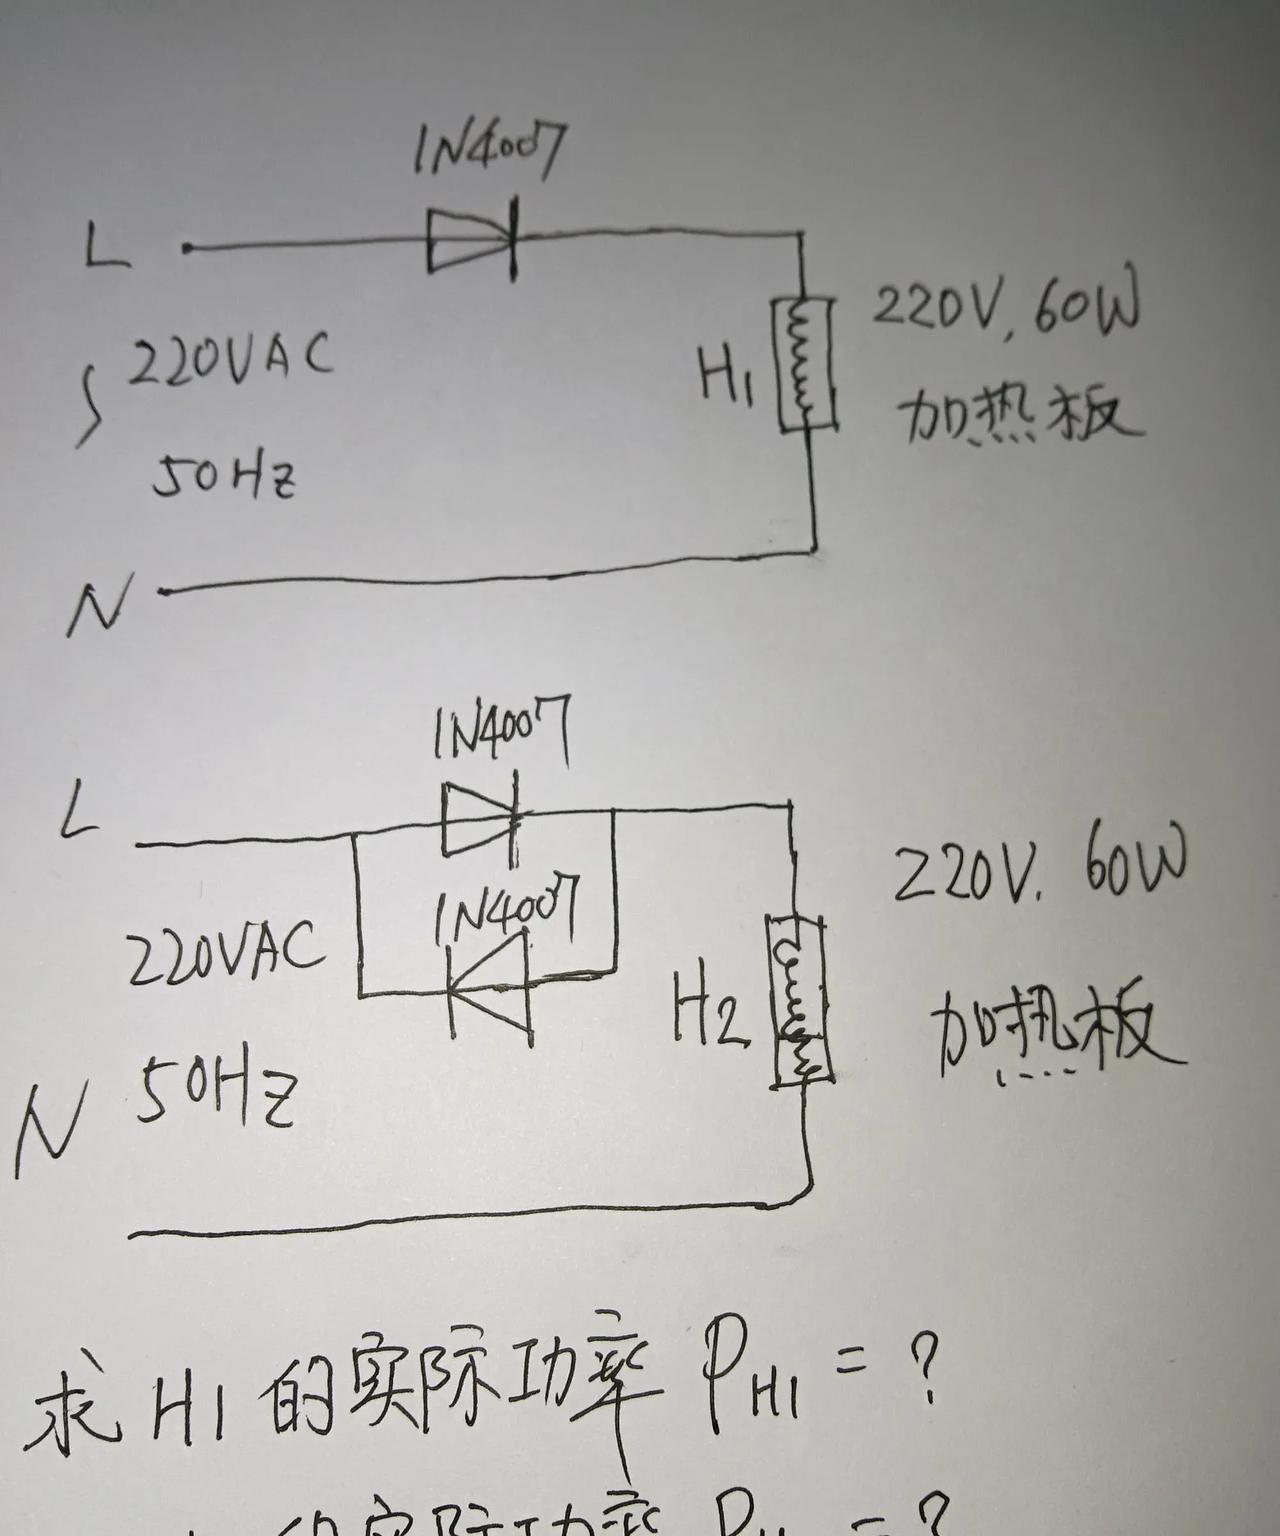 1N4007
L
220VAC
50Hz
N
H1
220V, 60W
加热板
1N4007
L
1N4007
220VAC
50Hz
N
H2
220V. 60W
加热板
求 H1 的实际功率 PH1 = ?
的实际功率 P = ?